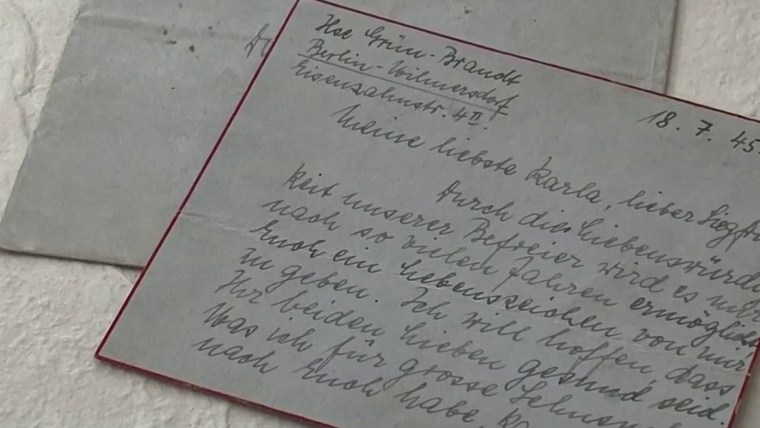 Ilse Grün-Brandt
Berlin-Wilmersdorf
Eisenzahnstr. 4II.
18. 7. 45.
Meine liebste Karla, lieber Siegfr
Durch die Liebenswürdig
keit unserer Befreier wird es mir
nach so vielen Jahren ermöglich
Euch ein Lebenszeichen von mir
zu geben. Ich will hoffen, dass
Ihr beiden Lieben gesund seid.
Was ich für grosse Sehnsu
nach Euch habe, ka